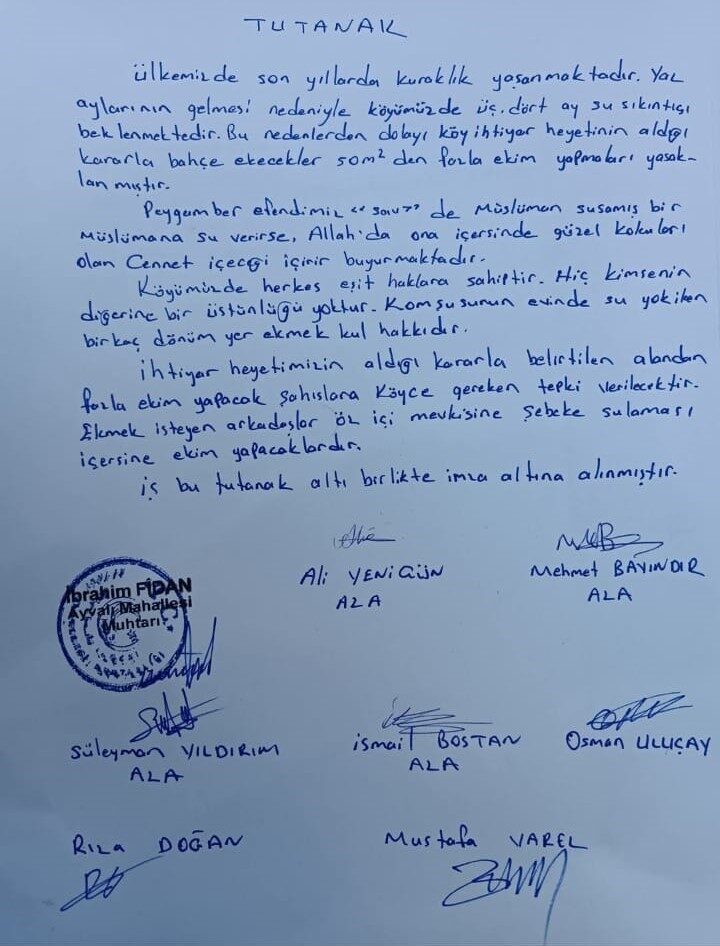 TUTANAK
Ülkemizde son yıllarda kuraklık yaşanmaktadır. Yaz
aylarının gelmesi nedeniyle köyümüzde üç.dört ay su sıkıntısı
beklenmektedir. Bu nedenlerden dolayı köy ihtiyar heyetinin aldığı
kararla bahçe ekecekler 50m² den fazla ekim yapmaları yasak-
lanmıştır.
Peygamber efendimiz "sav" de Müslüman susamış bir
Müslümana su verirse, Allah'da ona içersinde güzel kokuları
olan Cennet içeceği içirir buyurmaktadır.
Köyümüzde herkes eşit haklara sahiptir. Hiç kimsenin
diğerine bir üstünlüğü yoktur. Komşusunun evinde su yokiken
birkaç dönüm yer ekmek kul hakkıdır.
İhtiyar heyetimizin aldığı kararla belirtilen alandan
fazla ekim yapacak şahıslara Köyce gereken tepki verilecektir.
Ekmek isteyen arkadaşlar öz içi mevkisine şebeke sulaması
içersine ekim yapacaklardır.
İş bu tutanak altı birlikte imza altına alınmıştır.
Ali YENİGÜN
AZA
Mehmet BAYINDIR
AZA
İbrahim FİDAN
Ayvalı Mahallesi
Muhtarı
Süleyman YILDIRIM
AZA
İsmail BOSTAN
AZA
Osman ULUÇAY
Rıza DOĞAN
Mustafa VAREL